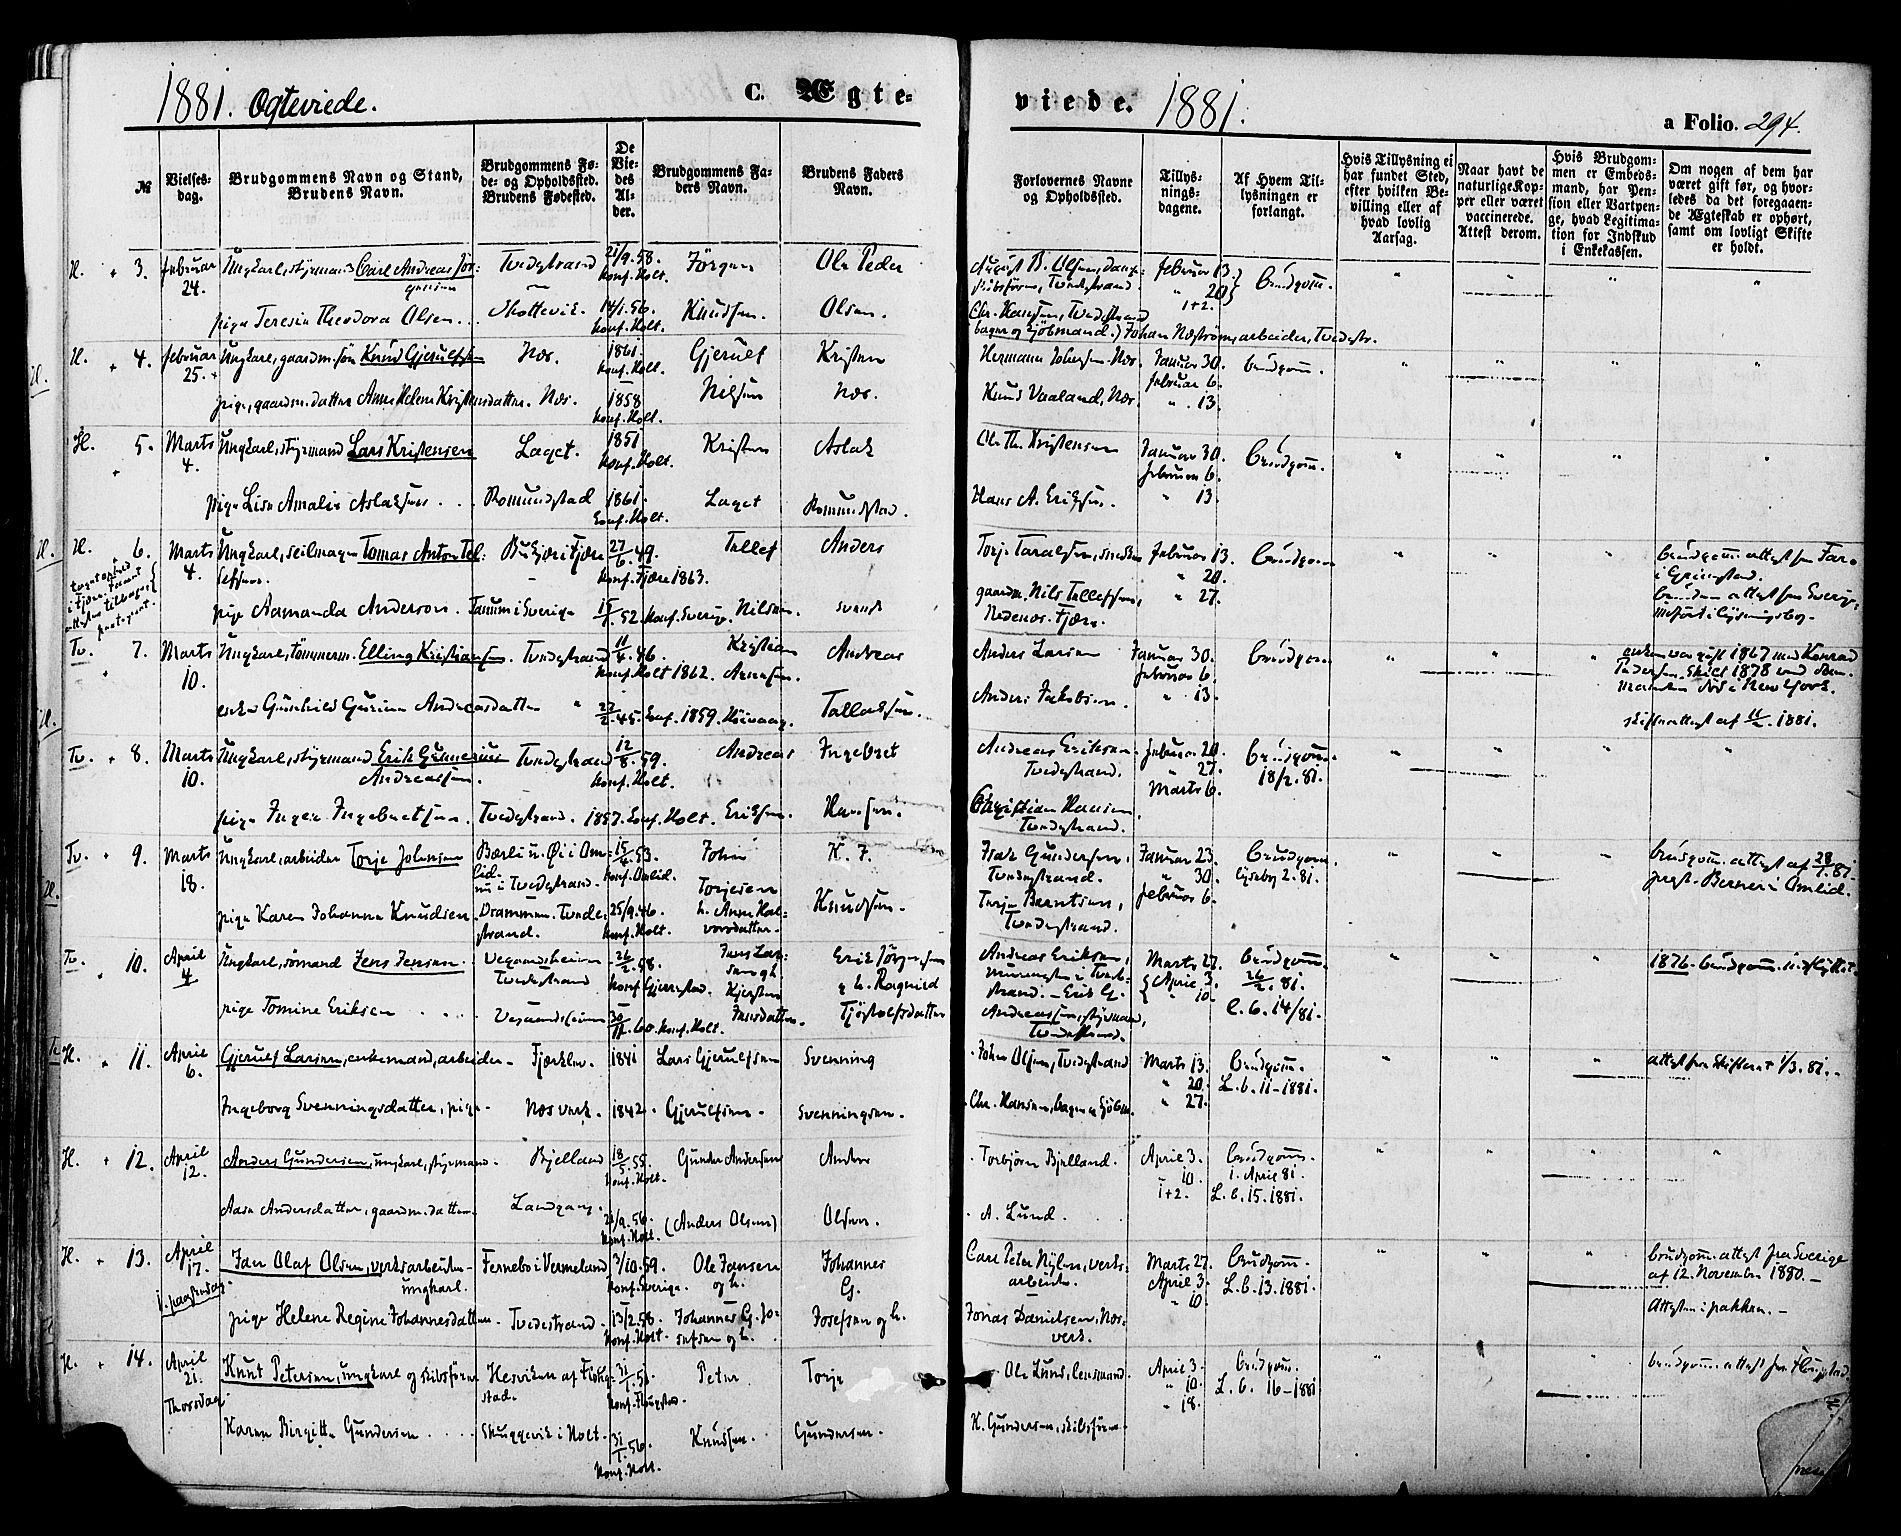 1881. Ogteviede.
C. Ægte-
viede. 1881.
a Folio. 294.
№
Vielses-
dag.
Brudgommens Navn og Stand,
Brudens Navn.
Brudgommens Fø-
de- og Opholdssted.
Brudens Fødested.
De
Vie-
des
Al-
der.
Brudgommens Fa-
ders Navn.
Brudens Faders
Navn.
Forlovernes Navne
og Opholdssted.
Tillys-
nings-
dagene.
Af Hvem Til-
lysningen er
forlangt.
Hvis Tillysning ei
har fundet Sted,
efter hvilken Be-
villing eller af
hvad lovlig
Aarsag.
Naar havt de
naturlige Kop-
per eller været
vaccinerede.
Attest derom.
Hvis Brudgom-
men er Embeds-
mand, har Pen-
sion eller Vartpen-
ge, hvad Legitima-
tion for Indskud
i Enkekassen.
Om nogen af dem har
været gift før, og hvor-
ledes da det foregaaen-
de Ægteskab er ophørt,
samt om lovligt Skifte
er holdt.
H. 3. Februar Ungkarl, styrmand Carl Andreas Jør- Tvedestrand 21/9.58. Jørgen Ole Peder
24. gensen Konf. Holt.
pige Teresia Theodora Olsen. Skottevik. 14/1.56. Knudsen. Olsen.
Konf. Holt.
Februar 13. Brudgom.
" 20
1+2.
Chr. Hansen, Tvedestrand
bager og Johan Næstrøm, arbeider, Tvedestr.
H. 4. Februar Ungkarl, gaardm. søn Knud Gjerulfsen Næs. 1861 Gjerulf Kristen
25. Konf. Holt.
pige, gaardm. datter Anne Helene Kristensdatter. Næs. 1858 Nilsen Næs.
Konf. Holt.
Hermann Johnsen Næs. Januar 30. brudgom.
Februar 6.
Knud Vaaland, Næs. " 13.
H. 5. Marts Ungkarl, styrmand Lars Kristensen Laget. 1851 Kristen Aslak
4. Konf. Holt.
pige Lisa Amalie Aslaksen Romundstad 1861. Laget Romundstad.
Konf. Holt.
Ole Th. Kristensen Januar 30. Brudgom.
Februar 6.
Hans A. Eriksen. " 13.
H. 6. Marts Ungkarl, seilmager Tomas Anton Tel- Fjære 27/6.49. Tellef Anders
4. lefsen. Konf. Fjære 1863.
pige Aamanda Anderson. Tanum i Sverige 15/1.52. Konf. Sverige. Nilsen. Svensk
Torje Taralsen, Februar 13. Brudgom
" 20.
gaardm. Nils Tellefsen, " 27.
Nedenes. Fjære.
brudgom. attest fra Fære
i Grimstad.
bruden attest fra Sverige,
Tv. 7. Marts Ungkarl, tømmerm. Elling Kristiansen. Tvedestrand 11/4.46. Kristian Andreas
10. Konf. Holt 1862. Arnesen.
enke Gunhild Gurine Andreasdatter " 22/2.45. Konf. 1859. Høivaag. Tallaksen.
Anders Larsen Januar 30. Brudgom
Februar 6.
Anders Jakobsen. " 13.
enken var gift 1867 med Konrad
Pedersen. Skilt 1878 ved
manden død i New York.
skifteattest af 11/2. 1881.
Tv. 8. Marts Ungkarl, styrmand Erik Gunnerius Tvedestrand 12/8.59. Andreas Ingebret
10. Andreassen. Konf. Holt.
pige Inger Ingebretsen. Tvedestrand. 1857. Konf. Holt. Eriksen. Hansen.
Andreas Eriksen. Februar 20. Brudgom.
Tvedestrand. " 27. 18/2.81.
Marts 6.
Christian Hansen,
Tvedestrand.
Tv. 9. Marts Ungkarl, arbeider Torje Johnsen Bærli u. Øi i Om- 15/4.53. John K. F.
18. lid. nu i Tvedestrand. Konf. Omlid. Torjesen
pige Karen Johanna Knudsen. Drammen. Tvede- 25/9.46. h. Anne Hal- Knudsen.
strand. Konf. Holt. vorsdatter.
Isak Gundersen, Januar 23. brudgom.
Tvedestrand. " 30. Lysebog 2.81.
Terje Berntsen, Februar 6.
Tvedestrand.
brudgom. attest af 28/1.81.
prest Berner i Omlid.
Tv. 10. April Ungkarl, sømand Jens Jensen. Vegaardsheien 26/2.58. Jens Lar- Erik Jørgensen
4 Tvedestrand Konf. Gjerrestad. sen og h. & h. Ragnild
pige Tomine Eriksen Vegaardsheien 30/11.60. Konf. Holt. Kjersten Jensdatter. Tjøstolfsdatter
Andreas Eriksen, Marts 27. brudgom.
i Tvede- April 3. 26/2.81.
strand. – Erik G. " 10. L.b. 14/81.
Andreassen, styrmand,
Tvedestrand.
1876. brudgom. indflyttet.
H. 11. April Gjerulf Larsen, enkemand, arbeider. Fjærkleiv. 1841 Lars Gjerulfsen Svenning
6.
Ingeborg Svenningsdatter, pige. Næs verk. 1842. Gjerulfsen. Svenningsen.
Johan Olsen, Tvedestrand Marts 13. Brudgom.
" 20. L.b. 11–1881.
Chr. Hansen, bager " 27.
attest fra Skifteret 1/3.81.
H. 12. April Anders Gundersen, ungkarl, styrmand. Bjelland 18/5.55. Gunder Andersen Anders
12. Konf. Holt.
Aase Andersdatter, gaardm. datter. Landgang. 21/9.56. (Anders Olsen) Olsen.
Konf. Holt.
Torbjørn Bjelland. April 3. brudgom.
10. 1. April 81.
1+2. L.b. 15. 1881.
A. Lund.
H. 13. April Jan Olaf Olsen, verksarbeider. Fernebo i Vermeland 3/10.59. Ole Jansen Johannes
17. ungkarl. Konf. Sverige. og h. G.
1. paaskedag
pige Helene Regine Johannesdatter. Tvedestrand. 13/2.58. Johannes G. Jo- Josefsen og h.
Konf. Holt. sefsen og h.
Carl Peter Nylen, verks- Marts 27. brudgom.
arbeider. April 3. L.b. 13. 1881.
" 10.
Jonas Danielsen, Næs-
verk.
brudgom. attest fra Sverige
af 12. November 1880.–
Attesten i pakken.–
H. 14. April Knut Petersen, ungkarl og skibsfører Hesviken af Fløg- 31/1.51. Peter Torje
21. stad. Konf. Flougstad.
Thorsdag
Karen Birgitte Gundersen Skuggevik i Holt. 31/1.56. Knudsen. Gundersen.
Konf. Holt.
Ole Lund, lensmand. April 3. brudgom.
" 10. L.b. 16–1881
" 18.
K. Gundersen, skibsfører.
brudgom. attest fra Flougstad.